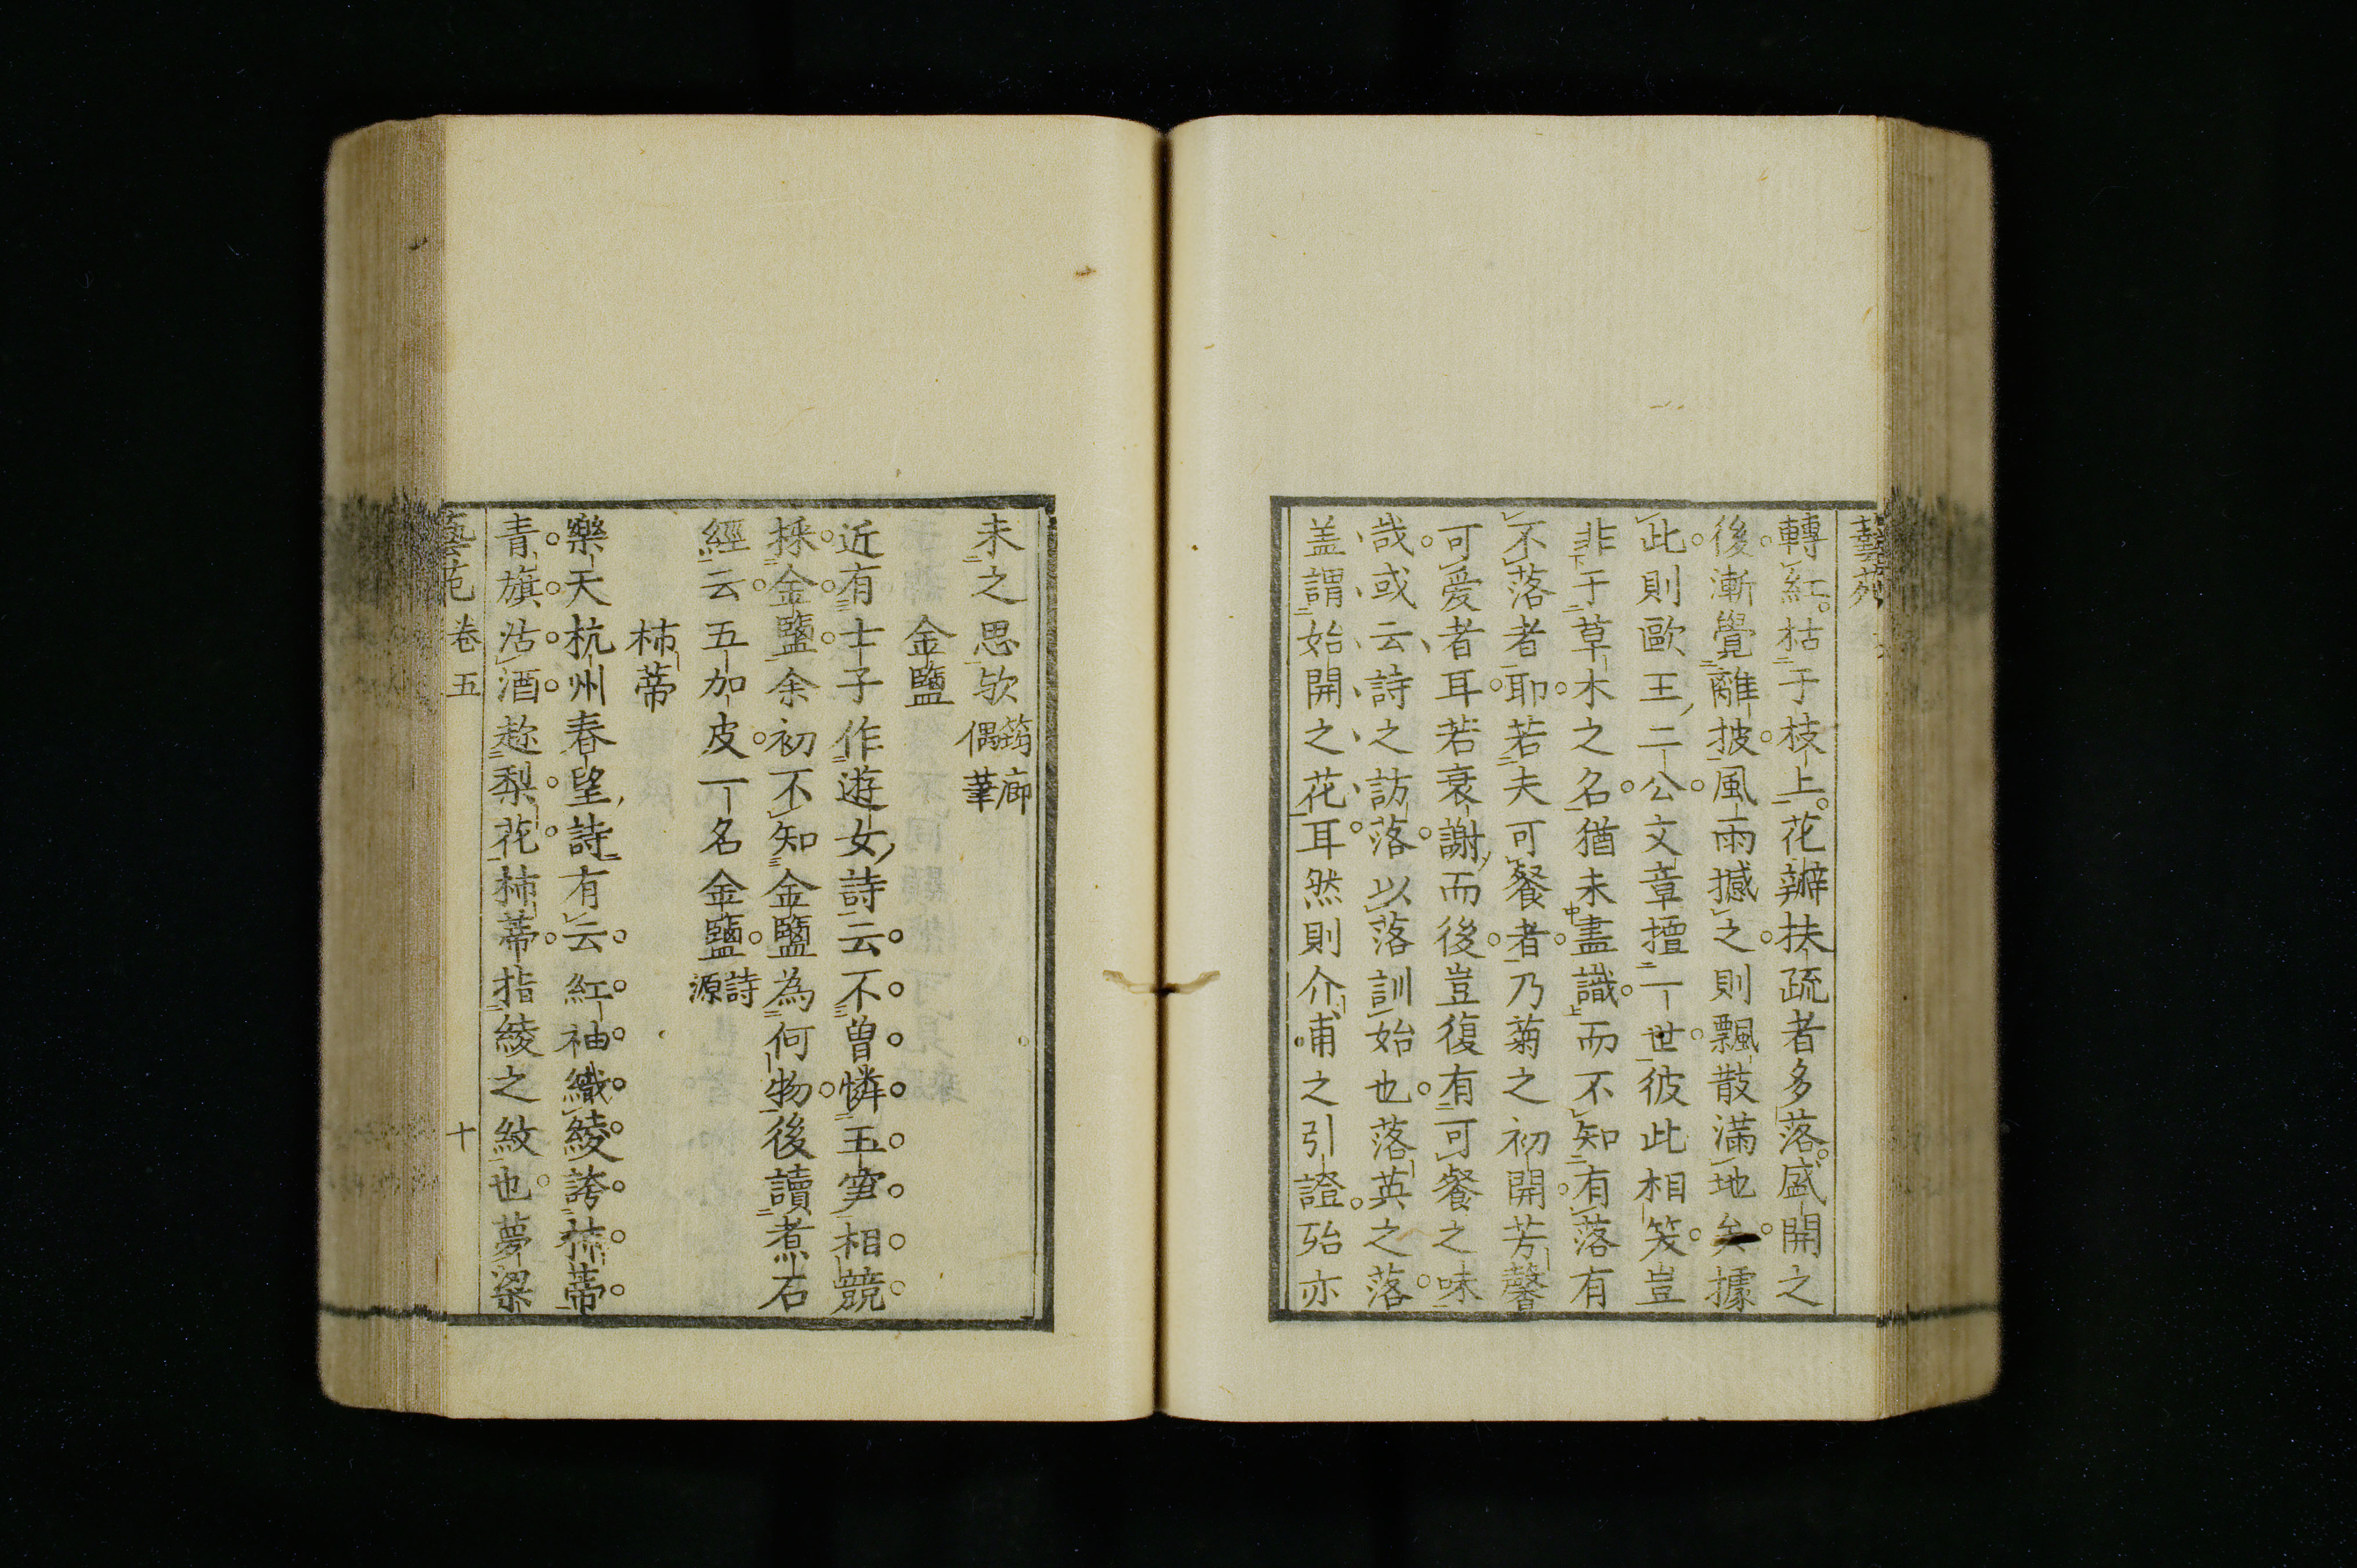 藝苑
轉紅枯于枝上花瓣扶疏者多落盛開之
後漸覺離披風雨撼之則飄散滿地矣據
此則歐王二公文章擅一世彼此相笑豈
非于草木之名猶未盡識而不知有落有
不落者耶若夫可餐者乃菊之初開芳馨
可愛者耳若衰謝而後豈復有可餐之味
哉或云詩之訪落以落訓始也落英之落
盖謂始開之花耳然則介甫之引證殆亦
未之思欤筠廊偶筆
金鹽
近有士子作遊女詩云不曽憐玉笋相競
採金鹽余初不知金鹽為何物後讀煮石
經云五加皮一名金鹽詩源
柿蒂
樂天杭州春望詩有云紅袖織綾誇柿蒂
青旗沽酒趂梨花柿蒂指綾之紋也夢梁
藝苑 卷五 十